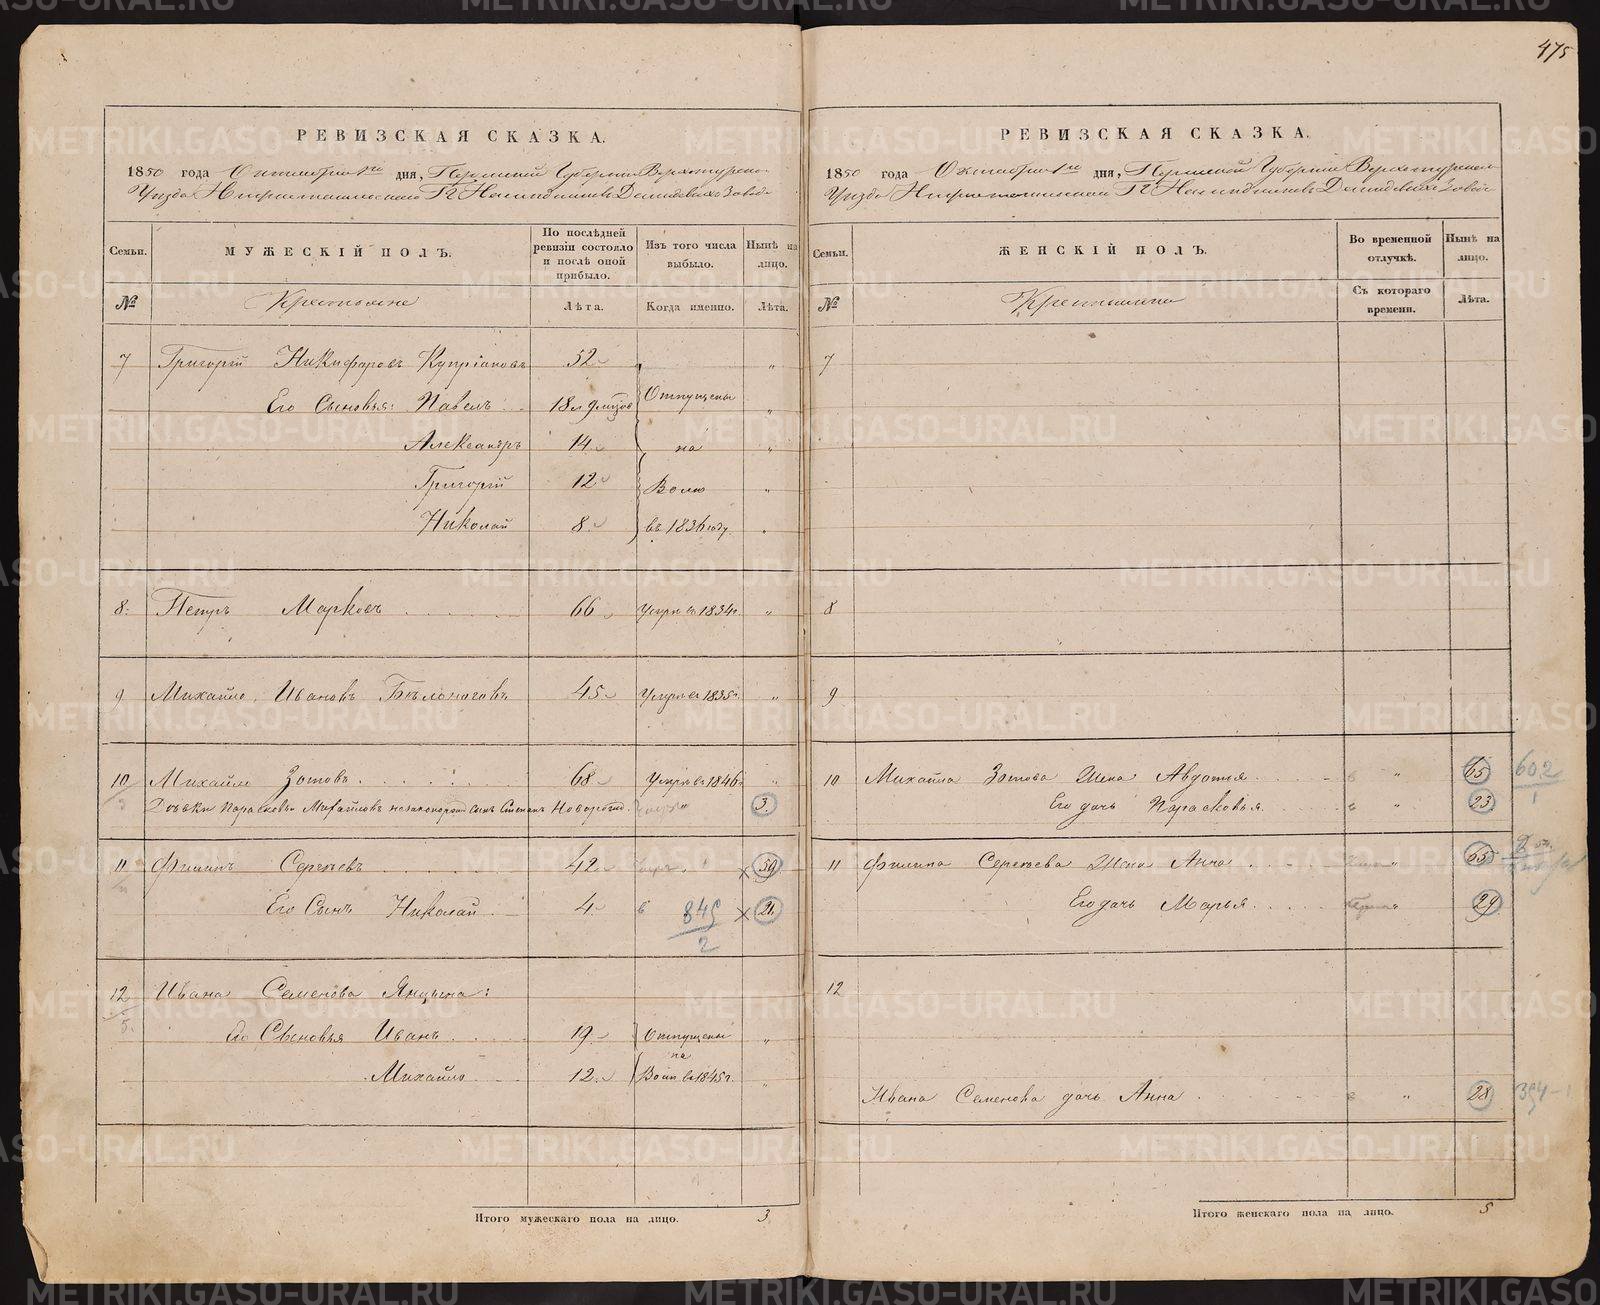 475
РЕВИЗСКАЯ СКАЗКА.
1850 года Октября дня, Пермской Губернии Верхотурскаго
Уѣзда Нижнетагильскаго Гг Наслѣдниковъ Демидовыхъ Завода
Семьи. МУЖЕСКІЙ ПОЛЪ. По послѣдней ревизіи состояло и послѣ оной прибыло. Изъ того числа выбыло. Нынѣ на лицо.
№ Крестьяне Лѣта. Когда именно. Лѣта.
7 Григорій Никифоровъ Купріяновъ 52
Его Сыновья: Павелъ 18 л 9 мцовъ Отпущены
Александръ 14 на
Григорій 12 Волю
Николай 8 въ 1836 году
8. Петръ Марковъ 66 Умре въ 1834 г.
9 Михайло Ивановъ Бѣлоноговъ 45 Умре въ 1835 г.
10 Михайло Зотовъ 68 Умре въ 1846
3 Дѣвки Парасковьи Михайловъ незаконнорож Сынъ Степанъ Новорожд. 3
11 Филипъ Сергѣевъ 42 59
Его Сынъ Николай 4 849 2 21
12 Ивана Семенова Янцына:
5. Его Сыновья Иванъ 19 Отпущены
на
Михайло 12 Волю въ 1845 г.
Итого мужескаго пола на лицо. 3
РЕВИЗСКАЯ СКАЗКА.
1850 года Октября дня, Пермской Губерніи Верхотурскаго
Уѣзда Нижнетагильскаго Гг Наслѣдниковъ Демидовыхъ Завода
Семьи. ЖЕНСКІЙ ПОЛЪ. Во временной отлучкѣ. Нынѣ на лицо.
№ Крестьянки Съ котораго времени. Лѣта.
7
8
9
10 Михайла Зотова Жена Авдотья 65 602 1
Его дочь Парасковья 23
11 Филипа Сергѣева Жена Анна 65
Его дочь Марья 29
12
Ивана Семенова дочь Анна 28 394-1
Итого женскаго пола на лицо. 5
METRIKI.GASO-URAL.RU